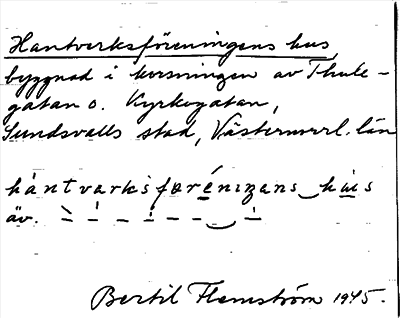 Hantverksföreningens hus,
byggnad i korsningen av Thule-
gatan o. Kyrkogatan,
Sundsvalls stad, Västernorrl. län
hántvarksføréniŋans‿hùs
äv.
Bertil Flemström 1945.